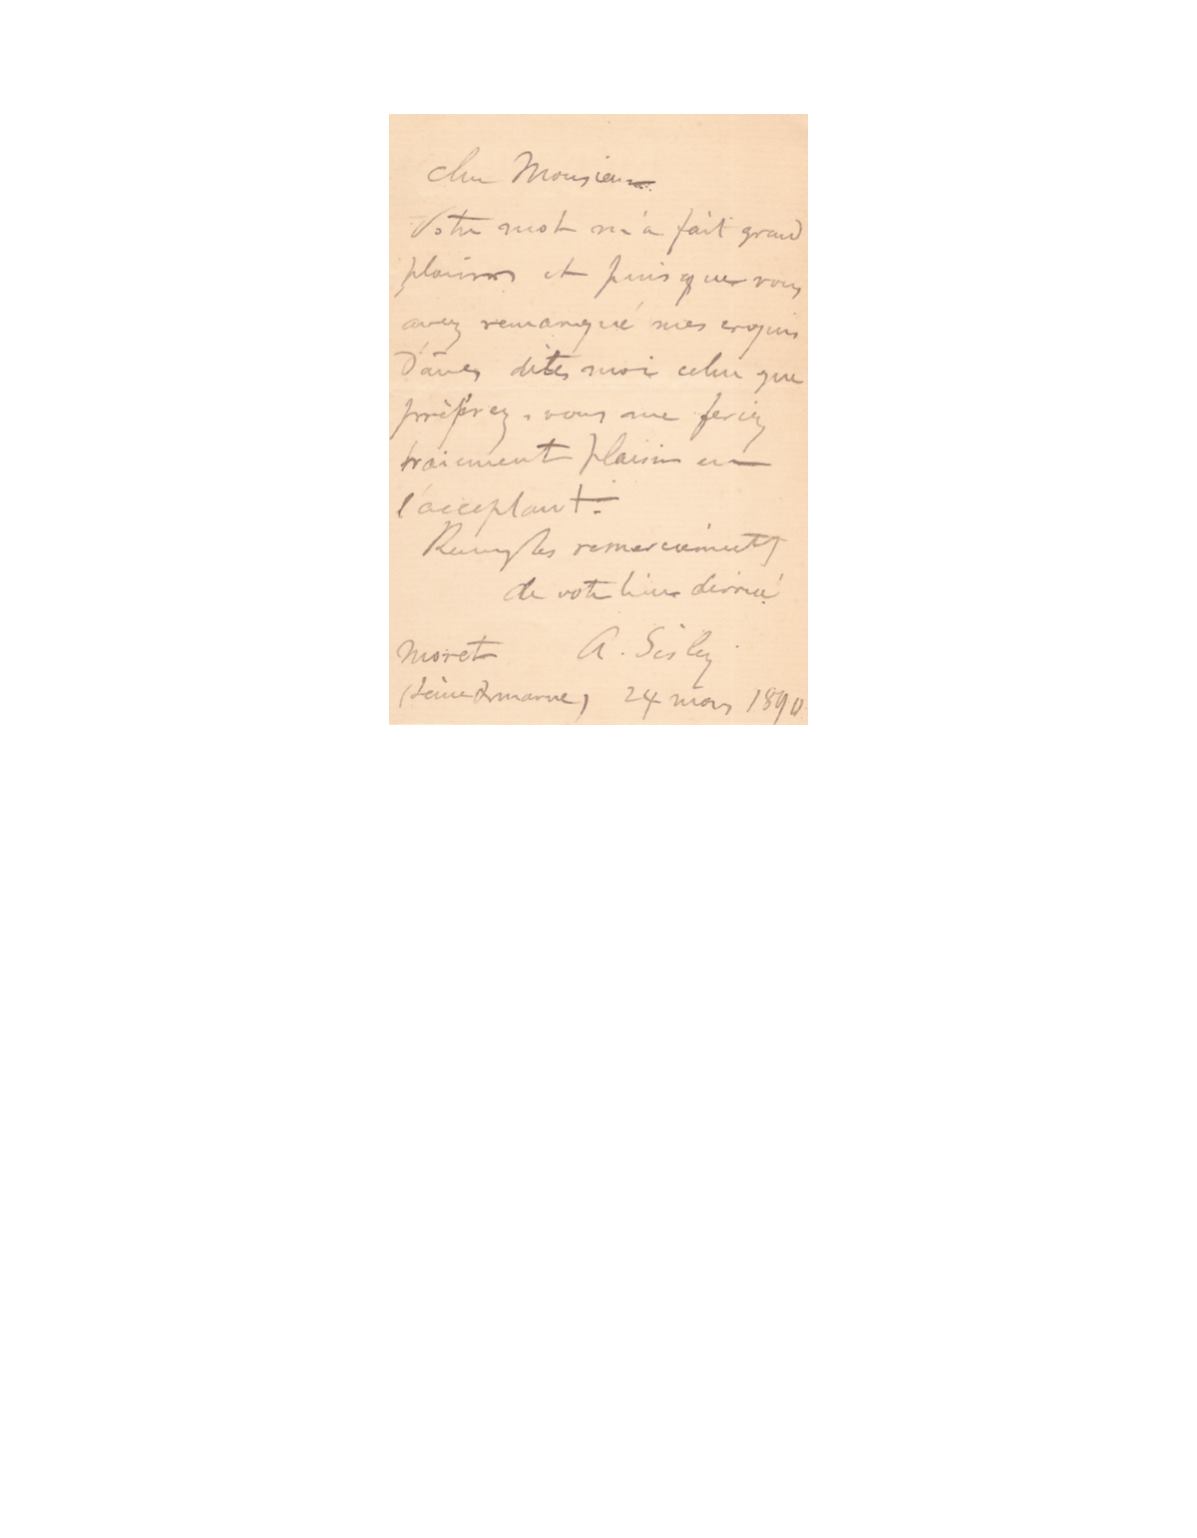 cher Monsieur
Votre mot m'a fait grand
plaisir et puisque vous
avez remarqué mes croquis
d'ânes dites moi celui que
préférez, vous me feriez
vraiment plaisir en
l'acceptant.
Recevez les remerciements
de votre bien dévoué
A. Sisley
Moret
(Seine & marne) 24 mars 1890